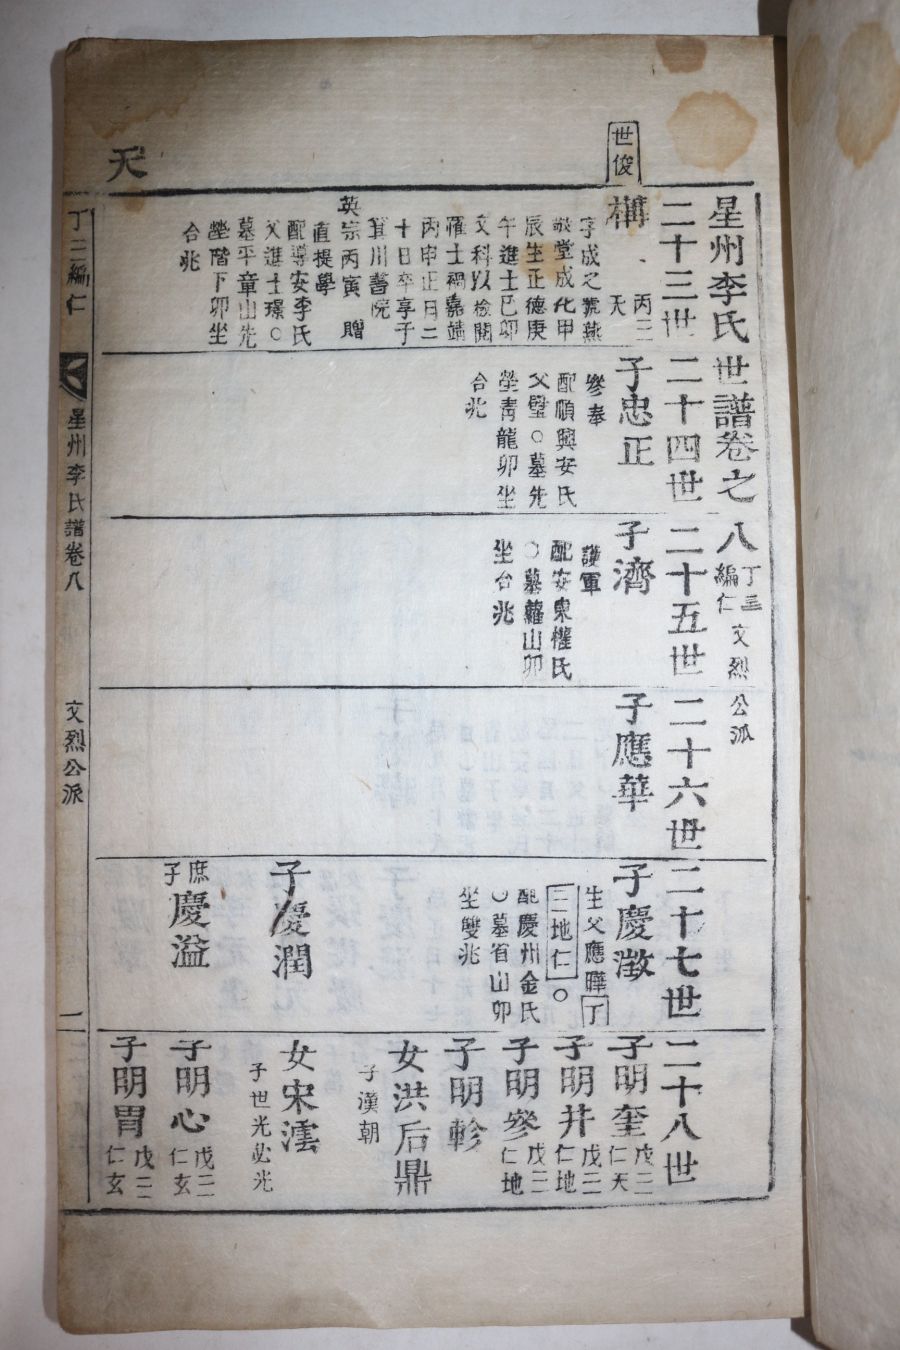 天
世俊
星州李氏世譜卷之八 丁三編仁 文烈公派
二十三世
二十四世
二十五世
二十六世
二十七世
二十八世
構 丙二天
字成之號燕
敬堂成化甲
辰生正德庚
午進士己卯
文科以檢閱
罹士禍嘉靖
丙申正月二
十日卒享于
箕川書院
英宗丙寅 贈
直提學
配導安李氏
父進士璟○
墓平章山先
塋階下卯坐
合兆
子忠正
參奉
配順興安氏
父璧○墓先
塋靑龍卯坐
合兆
子濟
護軍
配安東權氏
○墓蘿山卯
坐合兆
子應華
子慶澂
生父應曄丁
三地仁○
配慶州金氏
○墓省山卯
坐雙兆
子慶潤
庶子慶溢
子明奎 戊二仁天
子明井 戊二仁地
子明參 戊二仁地
子明軫
女洪后鼎
子漢朝
女宋澐
子世光必光
子明心 戊二仁玄
子明胃 戊二仁玄
丁三編仁
星州李氏譜卷八
文烈公派
一